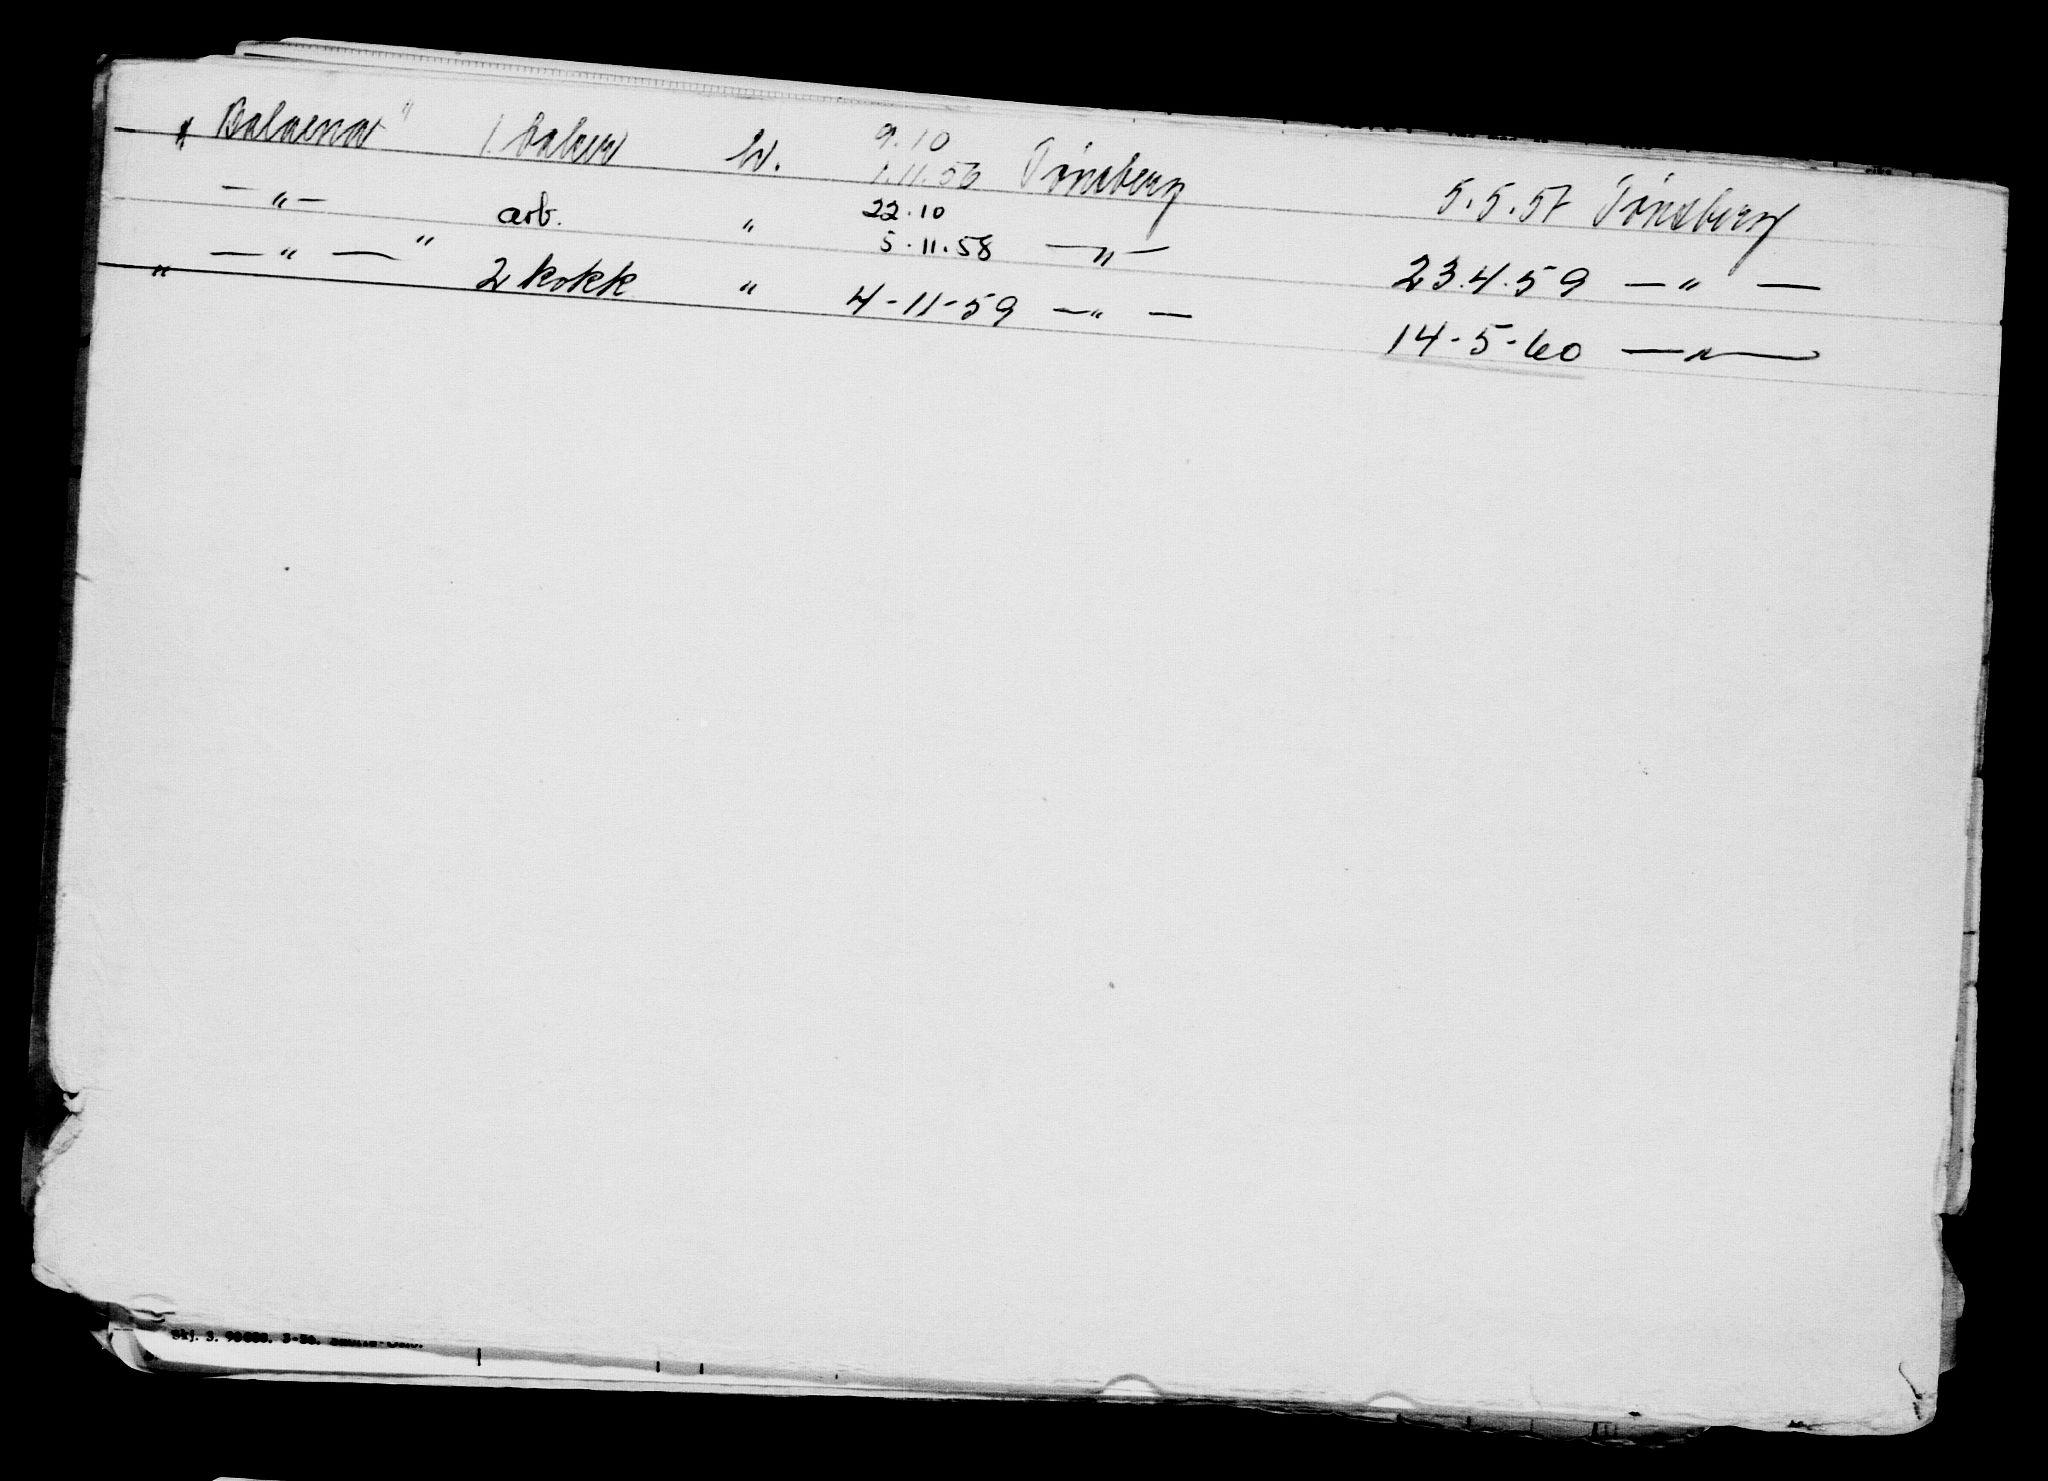 " Balaena" 1. baker hv. 9.10 1.11.56 Tønsberg 5.5.57 Tønsberg
—"— arb. " 22.10 5.11.58 —"— 23.4.59 —"—
" —"— " 2 kokk " 4-11-59 —"— 14-5-60 —"—
Skj. S.